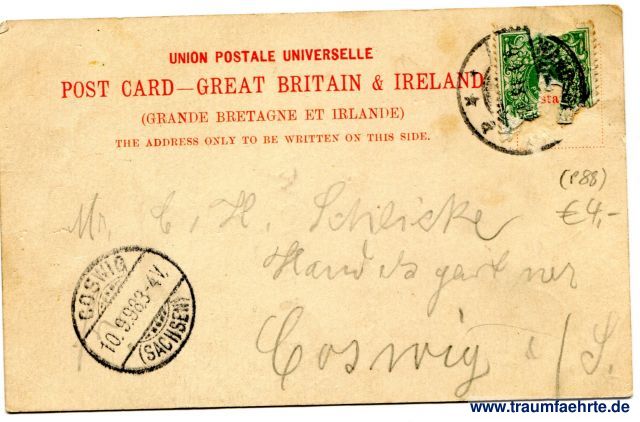 UNION POSTALE UNIVERSELLE
POST CARD—GREAT BRITAIN & IRELAND
(GRANDE BRETAGNE ET IRLANDE)
THE ADDRESS ONLY TO BE WRITTEN ON THIS SIDE.
sta
(P88)
€4,-
Mr. C. H. Schlicke
Handelsgärtner
Coswig i/S.
COSWIG
10.9.98.3-4V.
(SACHSEN)
www.traumfaehrte.de